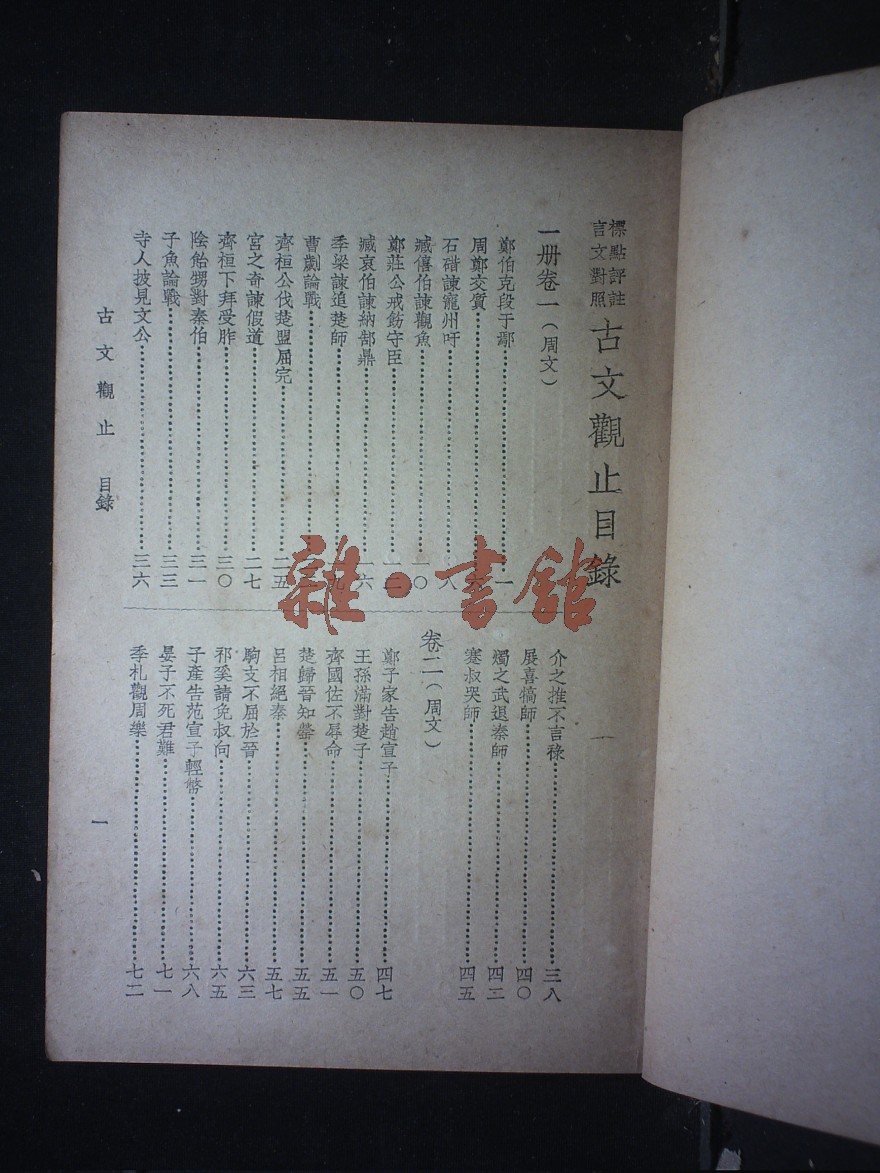 標點評註
言文對照
古文觀止目錄
一册卷一(周文)
鄭伯克段于鄢…一
周鄭交質…
石碏諫寵州吁…八
臧僖伯諫觀魚…一〇
鄭莊公戒飭守臣…一二
臧哀伯諫納郜鼎…一六
季梁諫追楚師…九
曹劌論戰…
齊桓公伐楚盟屈完…二五
宮之奇諫假道…二七
齊桓下拜受胙…三〇
陰飴甥對秦伯…三一
子魚論戰…三三
寺人披見文公…三六
介之推不言祿…三八
展喜犒師…四〇
燭之武退秦師…四三
蹇叔哭師…四五
卷二(周文)
鄭子家告趙宣子…四七
王孫滿對楚子…五〇
齊國佐不辱命…五一
楚歸晉知罃…五五
呂相絕秦…五七
駒支不屈於晉…六三
祁奚請免叔向…六五
子產告范宣子輕幣…六八
晏子不死君難…七一
季札觀周樂…七二
古文觀止 目錄
一
雜·書館